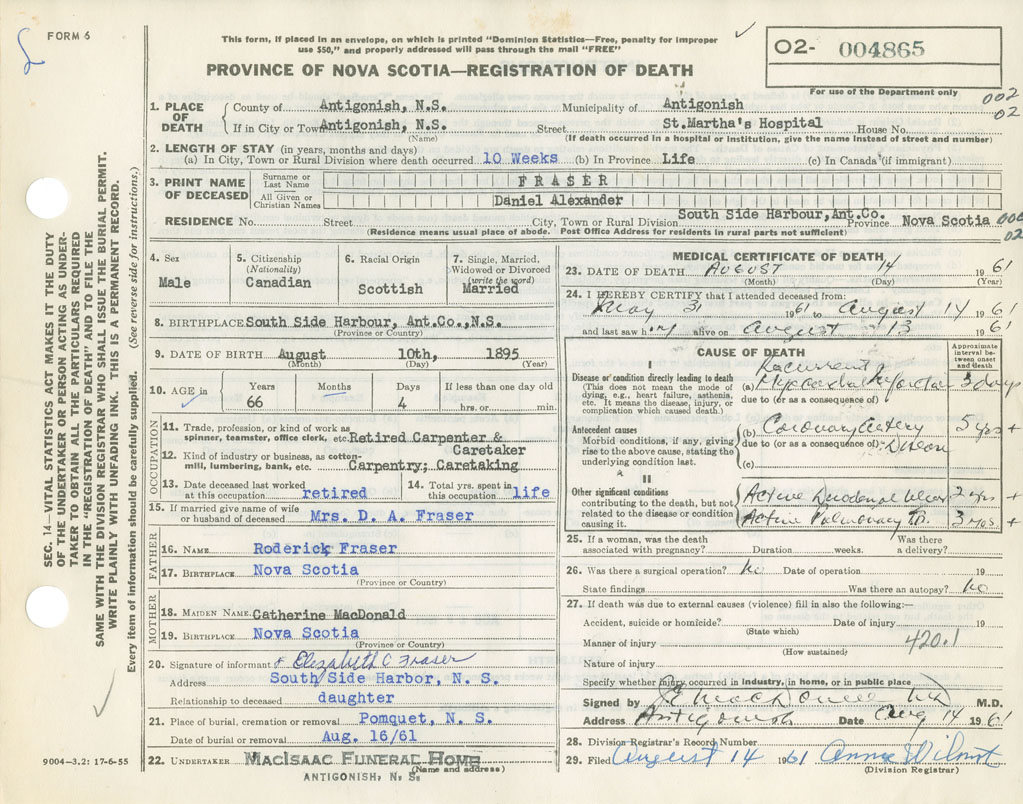 FORM 6
This form, if placed in an envelope, on which is printed "Dominion Statistics—Free, penalty for improper
use $50," and properly addressed will pass through the mail "FREE"
PROVINCE OF NOVA SCOTIA—REGISTRATION OF DEATH
O2- 004865
For use of the Department only
002
02
1. PLACE OF DEATH
County of Antigonish, N.S. Municipality of Antigonish
If in City or Town Antigonish, N.S. Street St.Martha's Hospital House No.
(Name) (If death occurred in a hospital or institution, give the name instead of street and number)
2. LENGTH OF STAY (in years, months and days)
(a) In City, Town or Rural Division where death occurred 10 Weeks (b) In Province Life (c) In Canada (if immigrant)
3. PRINT NAME OF DECEASED
Surname or Last Name FRASER
All Given or Christian Names Daniel Alexander
RESIDENCE No. Street City, Town or Rural Division South Side Harbour, Ant.Co. Province Nova Scotia
02
(Residence means usual place of abode. Post Office Address for residents in rural parts not sufficient)
SEC. 14—VITAL STATISTICS ACT MAKES IT THE DUTY
OF THE UNDERTAKER OR PERSON ACTING AS UNDER-
TAKER TO OBTAIN ALL THE PARTICULARS REQUIRED
IN THE "REGISTRATION OF DEATH" AND TO FILE THE
SAME WITH THE DIVISION REGISTRAR WHO SHALL ISSUE THE BURIAL PERMIT.
WRITE PLAINLY WITH UNFADING INK. THIS IS A PERMANENT RECORD.
Every item of information should be carefully supplied. (See reverse side for instructions.)
4. Sex
Male
5. Citizenship (Nationality)
Canadian
6. Racial Origin
Scottish
7. Single, Married, Widowed or Divorced (write the word)
Married
8. BIRTHPLACE South Side Harbour, Ant.Co., N.S.
(Province or Country)
9. DATE OF BIRTH August 10th, 1895
(Month) (Day) (Year)
10. AGE in Years Months Days If less than one day old
66 4 hrs. or min.
OCCUPATION
11. Trade, profession, or kind of work as
spinner, teamster, office clerk, etc. Retired Carpenter &
Caretaker
12. Kind of industry or business, as cotton-
mill, lumbering, bank, etc. Carpentry; Caretaking
13. Date deceased last worked at this occupation retired
14. Total yrs. spent in this occupation life
15. If married give name of wife
or husband of deceased Mrs. D. A. Fraser
FATHER
16. NAME Roderick Fraser
17. BIRTHPLACE Nova Scotia
(Province or Country)
MOTHER
18. MAIDEN NAME Catherine MacDonald
19. BIRTHPLACE Nova Scotia
(Province or Country)
20. Signature of informant Elizabeth C Fraser
Address South Side Harbor, N. S.
Relationship to deceased daughter
21. Place of burial, cremation or removal Pomquet, N. S.
Date of burial or removal Aug. 16/61
22. UNDERTAKER MACISAAC FUNERAL HOME
(Name and address)
ANTIGONISH, N. S.
9004-3.2: 17-6-55
MEDICAL CERTIFICATE OF DEATH
23. DATE OF DEATH AUGUST 14 1961
(Month) (Day) (Year)
24. I HEREBY CERTIFY that I attended deceased from:
May 31 1961 to August 14 1961
and last saw him alive on August 13 1961
CAUSE OF DEATH
Approximate interval between onset and death
I
Disease or condition directly leading to death
(This does not mean the mode of
dying, e.g., heart failure, asthenia,
etc. It means the disease, injury, or
complication which caused death.)
(a) Recurrent Myocardial Infarction 3 days
due to (or as a consequence of)
Antecedent causes
Morbid conditions, if any, giving
rise to the above cause, stating the
underlying condition last.
(b) Coronary Artery Disease 5 yrs +
due to (or as a consequence of)
(c)
II
Other significant conditions
contributing to the death, but not
related to the disease or condition
causing it.
Active Duodenal Ulcer 2 yrs +
Active Pulmonary Tb. 3 mos +
25. If a woman, was the death
associated with pregnancy? Duration weeks. Was there a delivery?
26. Was there a surgical operation? no Date of operation 19
State findings Was there an autopsy? no
27. If death was due to external causes (violence) fill in also the following:—
Accident, suicide or homicide? Date of injury 19
(State which)
Manner of injury 420.1
(How sustained)
Nature of injury
Specify whether injury occurred in industry, in home, or in public place
Signed by M.D.
Address Antigonish Date Aug 14 1961
28. Division Registrar's Record Number
29. Filed August 14 1961 Anna Wilmot
(Division Registrar)